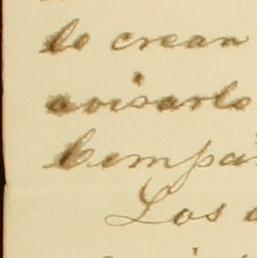 lo crean
avisarlo
Compa
Los